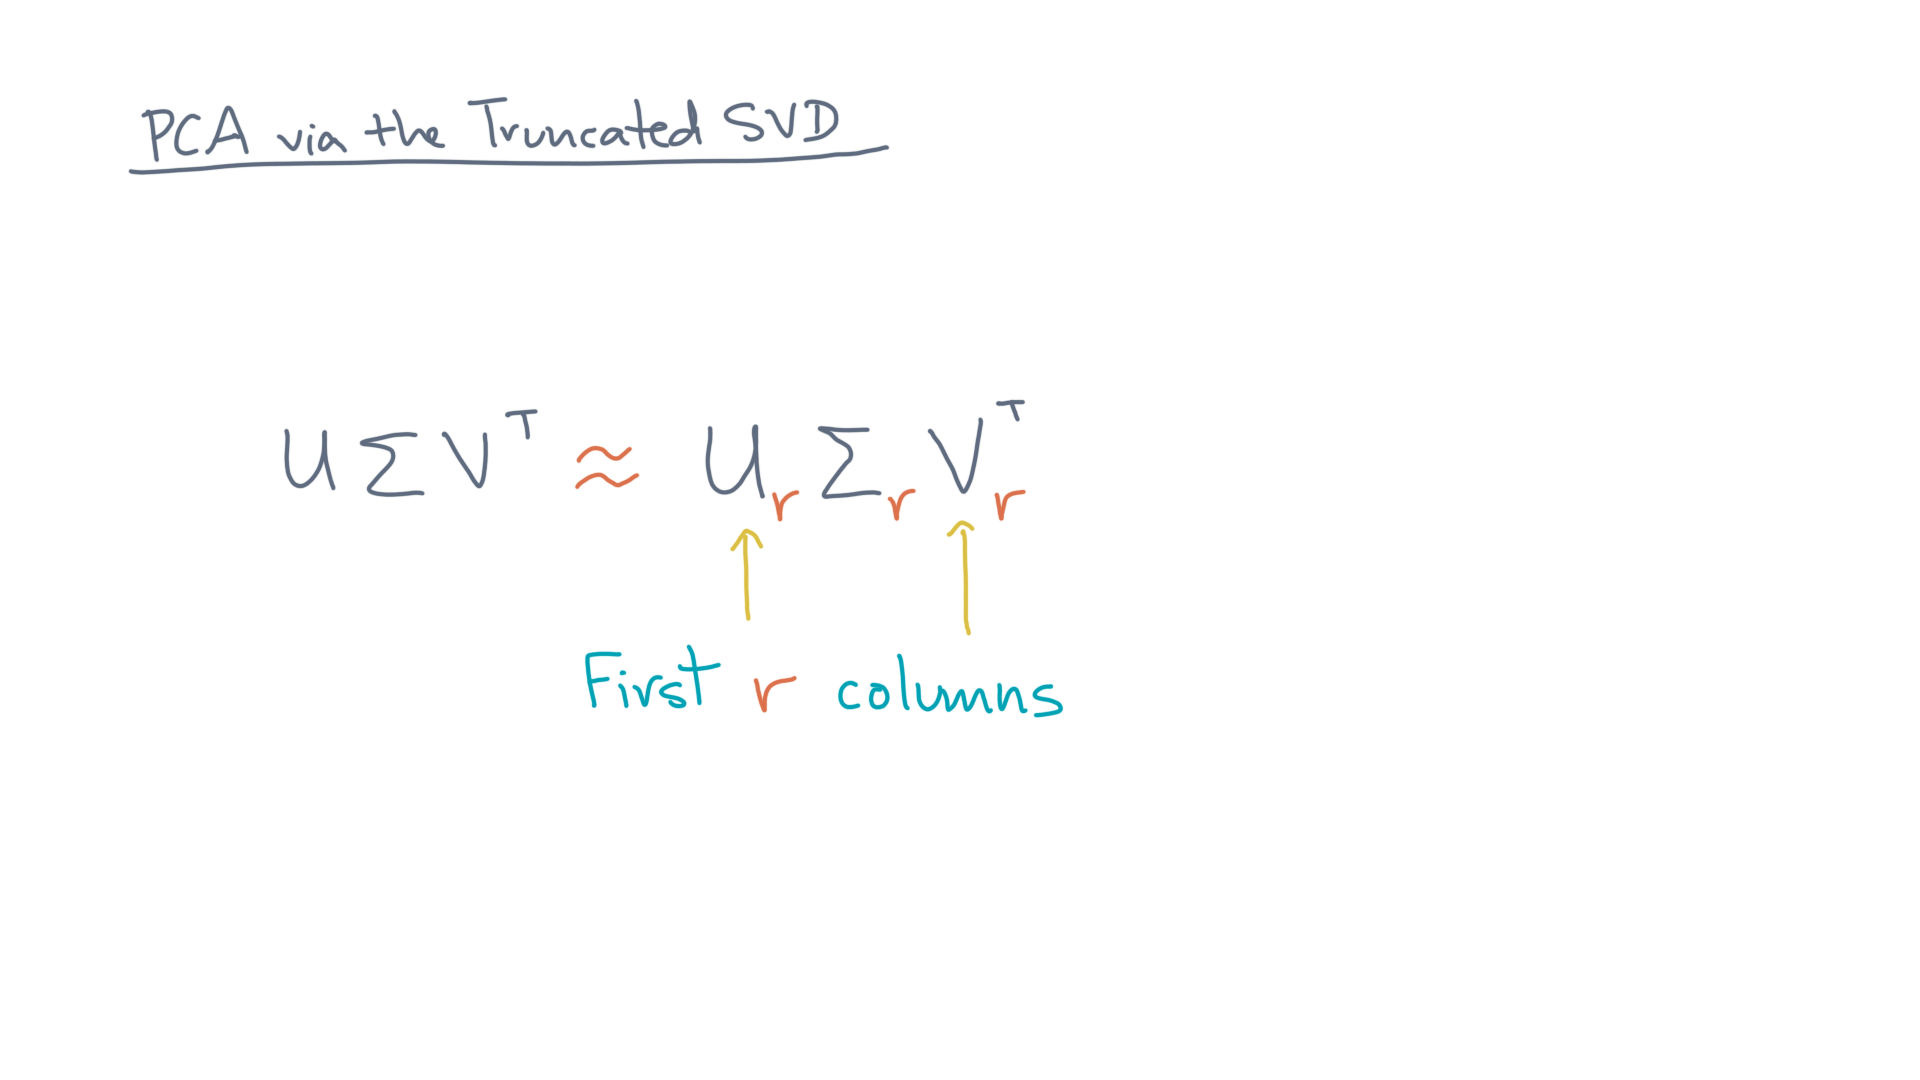 PCA via the Truncated SVD
U Σ Vᵀ ≈ Uᵣ Σᵣ Vᵣᵀ
First r columns